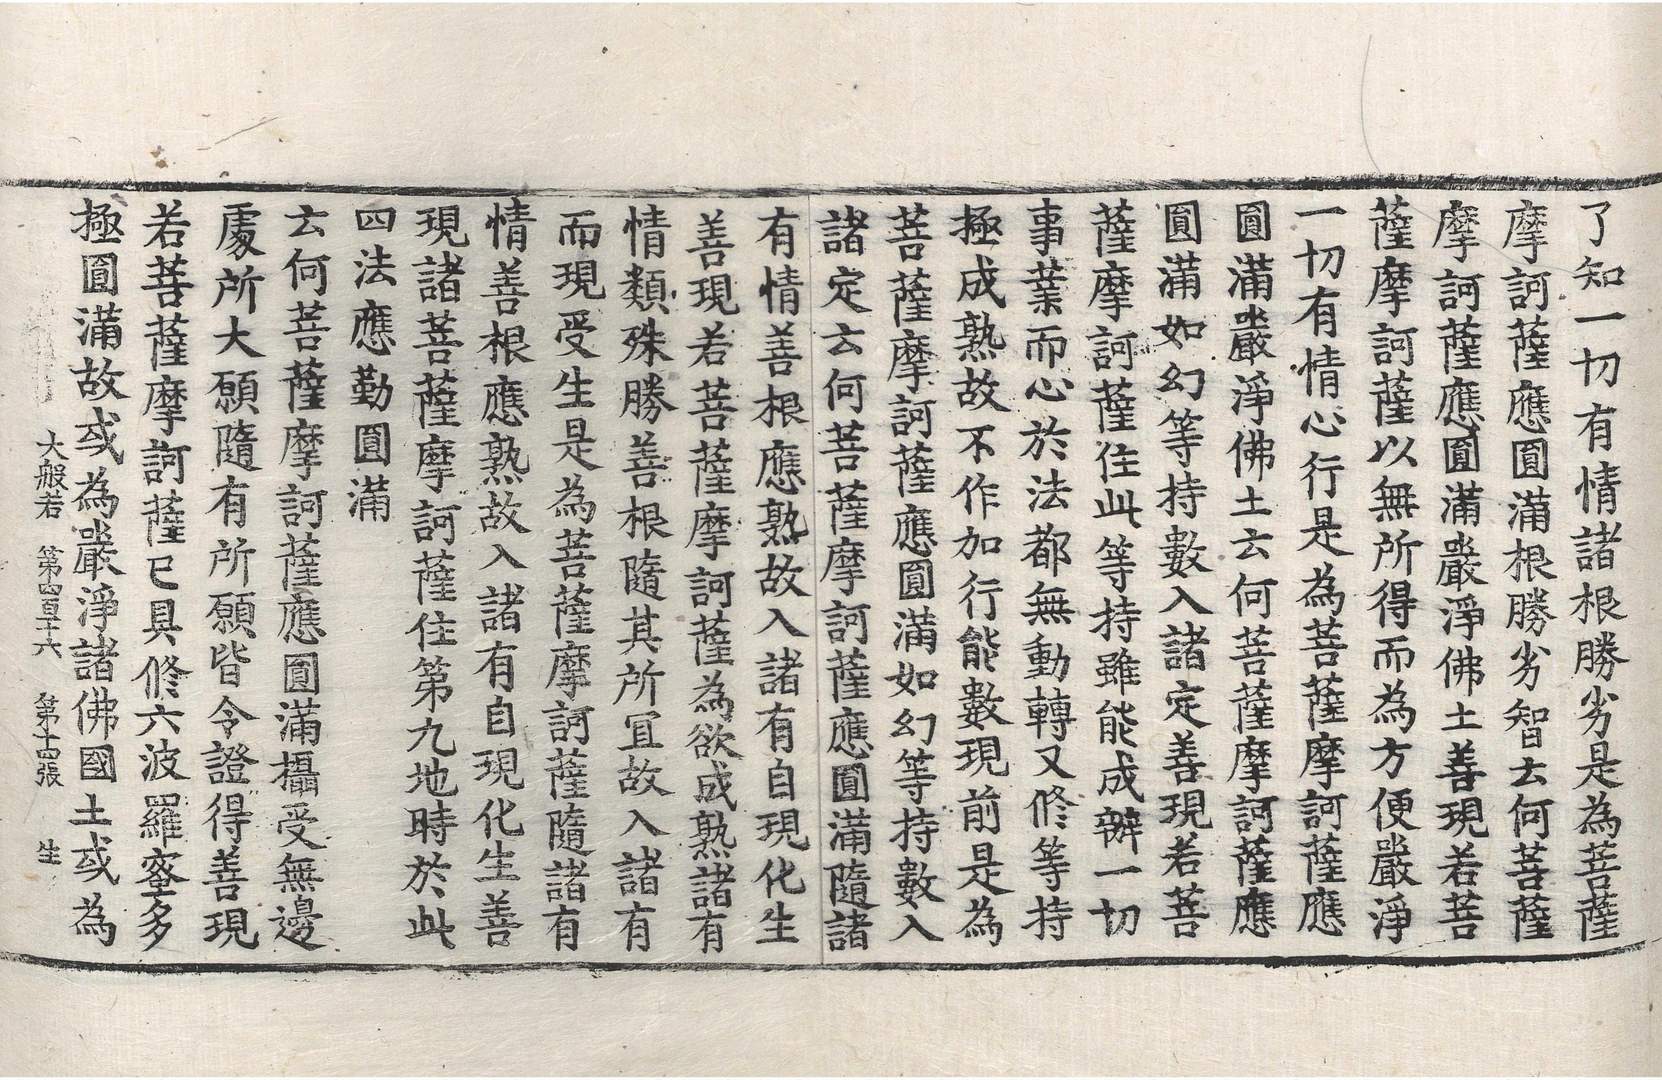 了知一切有情諸根勝劣是為菩薩
摩訶薩應圓滿根勝劣智云何菩薩
摩訶薩應圓滿嚴淨佛土善現若菩
薩摩訶薩以無所得而為方便嚴淨
一切有情心行是為菩薩摩訶薩應
圓滿嚴淨佛土云何菩薩摩訶薩應
圓滿如幻等持數入諸定善現若菩
薩摩訶薩住此等持雖能成辦一切
事業而心於法都無動轉又修等持
極成熟故不作加行能數現前是為
菩薩摩訶薩應圓滿如幻等持數入
諸定云何菩薩摩訶薩應圓滿隨諸
有情善根應熟故入諸有自現化生
善現若菩薩摩訶薩為欲成熟諸有
情類殊勝善根隨其所宜故入諸有
而現受生是為菩薩摩訶薩隨諸有
情善根應熟故入諸有自現化生善
現諸菩薩摩訶薩住第九地時於此
四法應勤圓滿
云何菩薩摩訶薩應圓滿攝受無邊
處所大願隨有所願皆令證得善現
若菩薩摩訶薩已具修六波羅蜜多
極圓滿故或為嚴淨諸佛國土或為
大般若 第四百十六 第十四張 生